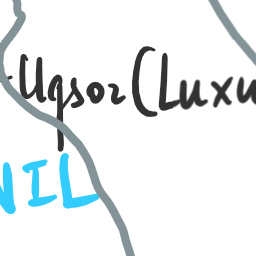 Uqsor (Luxu
NIL